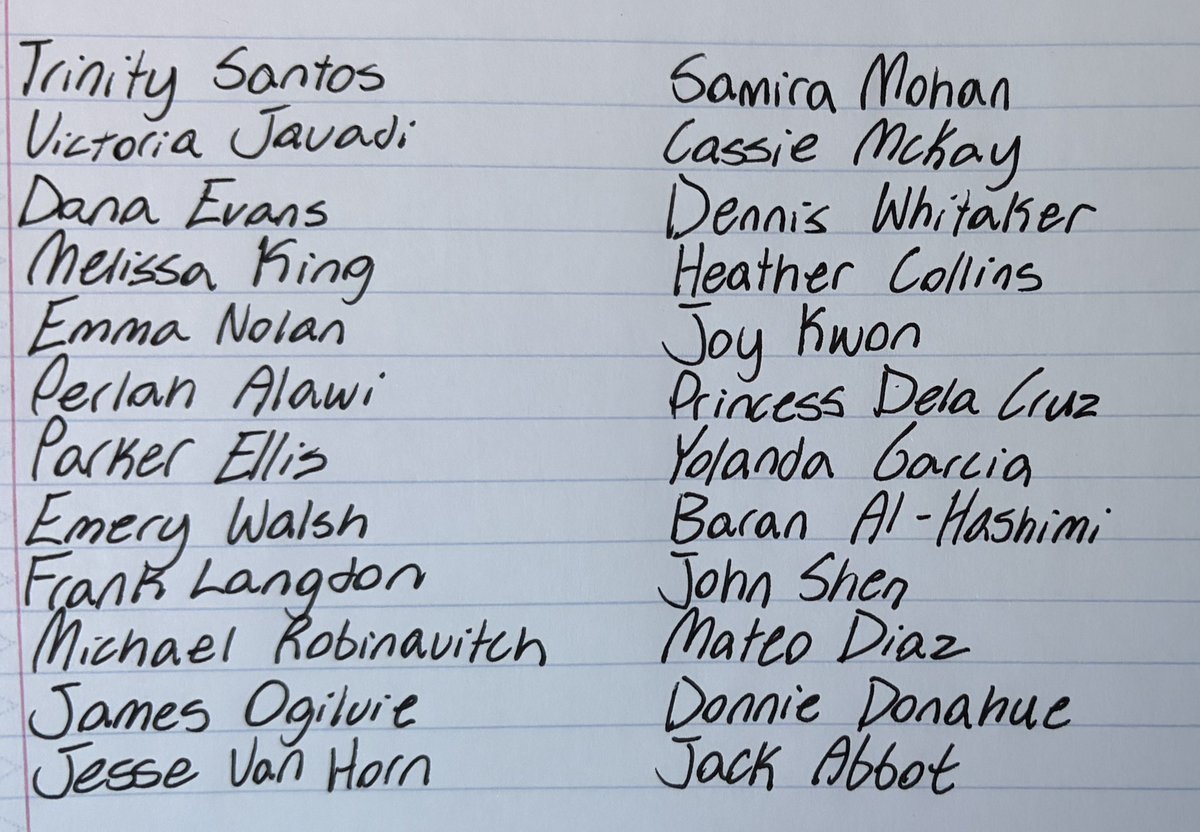 Trinity Santos
Victoria Javadi
Dana Evans
Melissa King
Emma Nolan
Perlan Alawi
Parker Ellis
Emery Walsh
Frank Langdon
Michael Robinavitch
James Ogilvie
Jesse Van Horn
Samira Mohan
Cassie McKay
Dennis Whitaker
Heather Collins
Joy Kwon
Princess Dela Cruz
Yolanda Garcia
Baran Al-Hashimi
John Shen
Mateo Diaz
Donnie Donahue
Jack Abbot